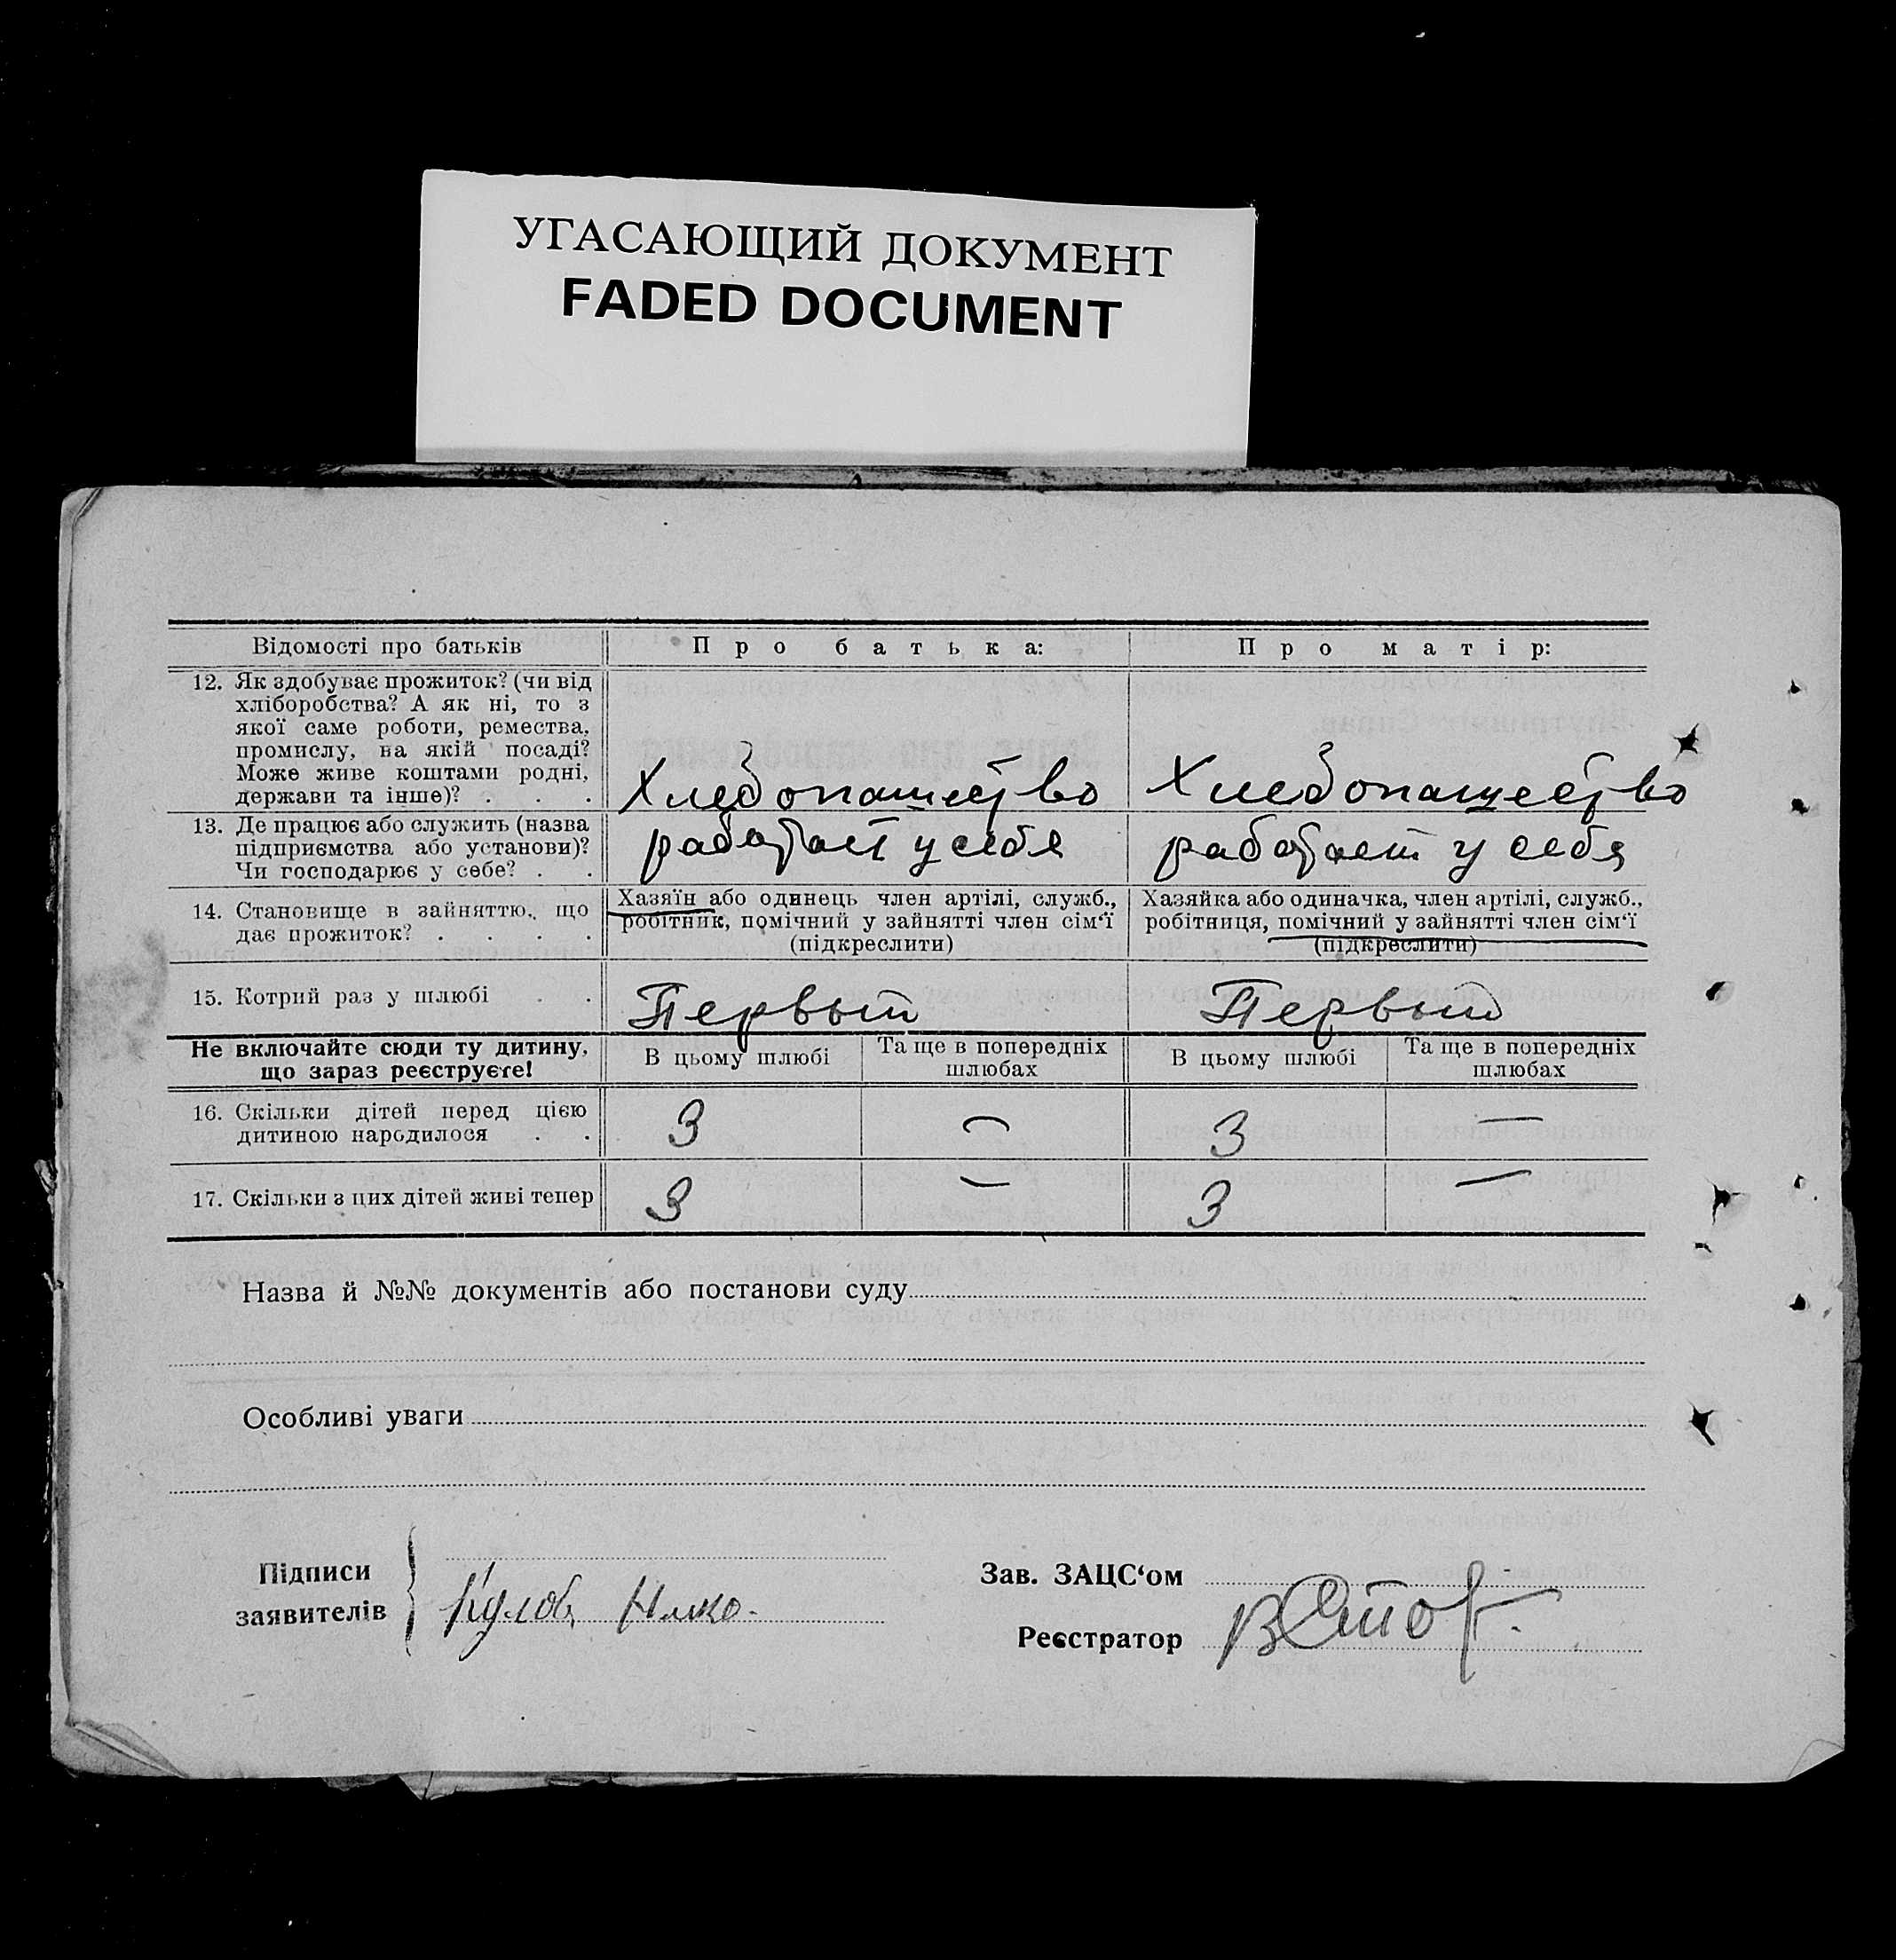 УГАСАЮЩИЙ ДОКУМЕНТ
FADED DOCUMENT
Відомості про батьків
Про батька:
Про матір:
12. Як здобуває прожиток? (чи від
хліборобства? А як ні, то з
якої саме роботи, ремества,
промислу, на якій посаді?
Може живе коштами родні,
держави та інше)? . . .
Хлебопашество
Хлебопашество
13. Де працює або служить (назва
підприємства або установи)?
Чи господарює у себе? . .
работает у себя
работает у себя
14. Становище в зайняттю, що
дає прожиток? . . . .
Хазяїн або одинець член артілі, служб.,
робітник, помічний у зайнятті член сім'ї
(підкреслити)
Хазяйка або одиначка, член артілі, служб.,
робітниця, помічний у зайнятті член сім'ї
(підкреслити)
15. Котрий раз у шлюбі . .
Первый
Первый
Не включайте сюди ту дитину,
що зараз реєструєте!
В цьому шлюбі
Та ще в попередніх
шлюбах
В цьому шлюбі
Та ще в попередніх
шлюбах
16. Скільки дітей перед цією
дитиною народилося . .
3
—
3
—
17. Скільки з цих дітей живі тепер
3
—
3
—
Назва й №№ документів або постанови суду
Особливі уваги
Підписи
заявителів
Зав. ЗАЦС'ом
Реєстратор